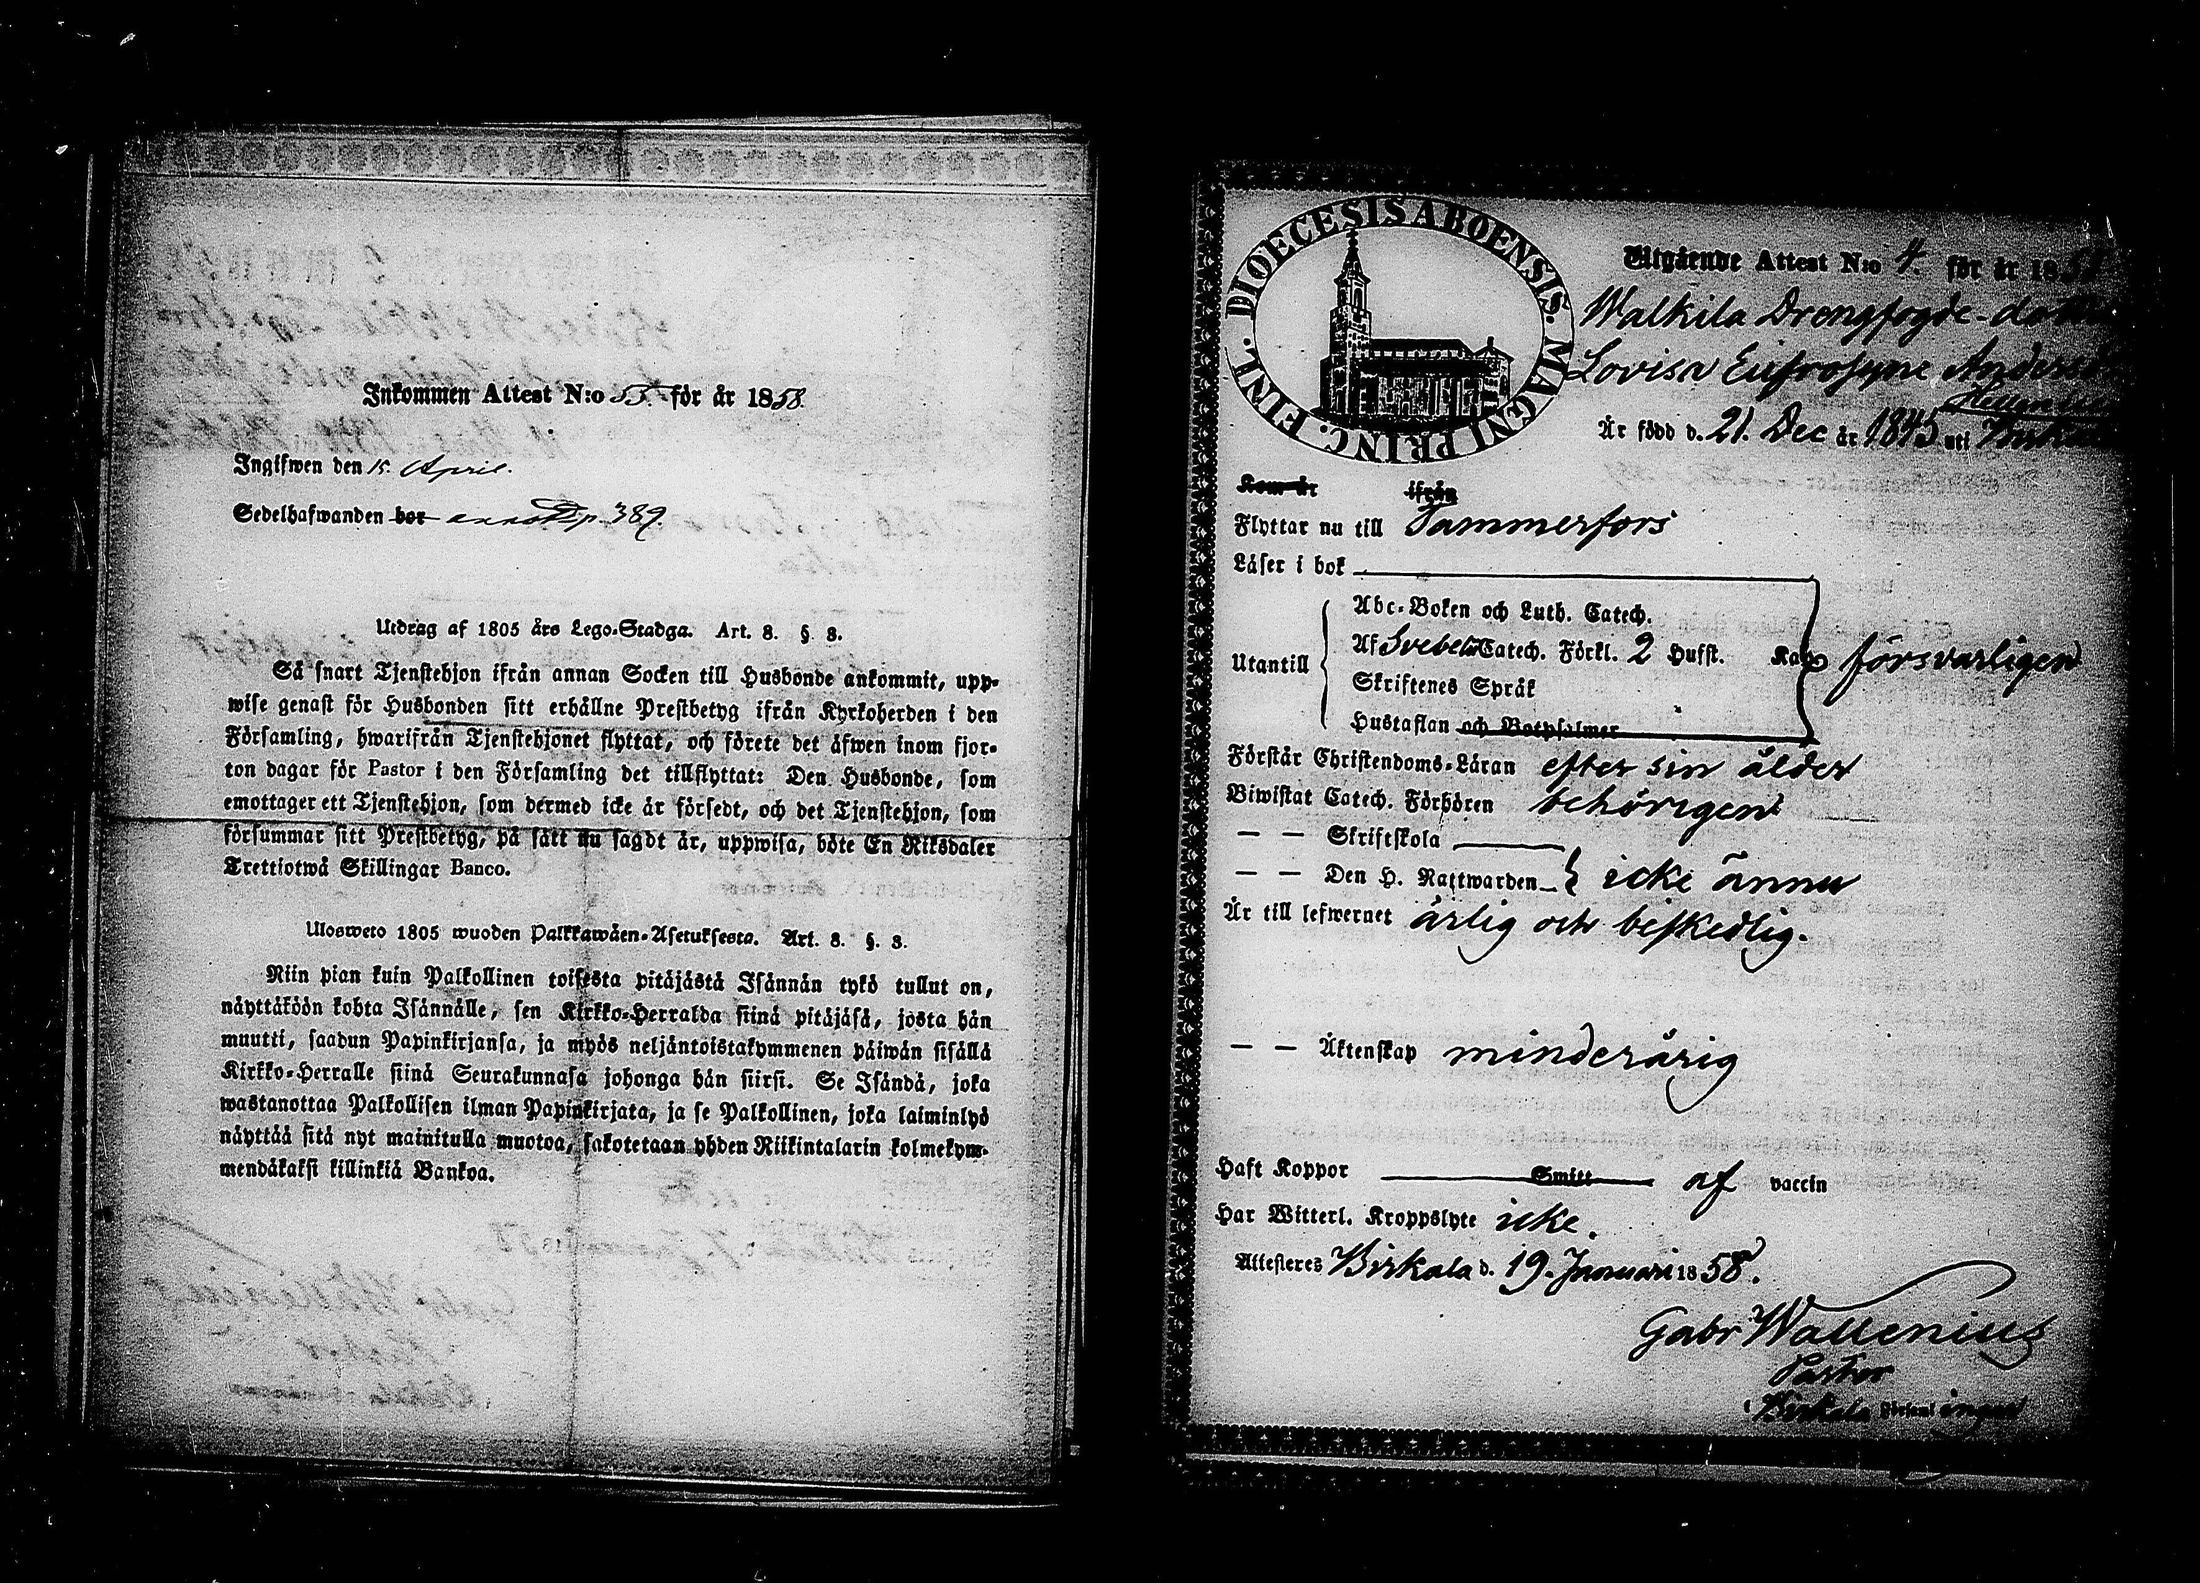 Inkommen Attest N:o 55. för år 1858.
Ingifwen den 15. April.
Sedelhafwanden bor p. 389.
Utdrag af 1805 års Lego-Stadga. Art. 8. §. 8.
Så snart Tjenstehjon ifrån annan Socken till Husbonde ankommit, upp-
wise genast för Husbonden sitt erhållne Prestbetyg ifrån Kyrkoherden i den
Församling, hwarifrån Tjenstehjonet flyttat, och förete det äfwen inom fjor-
ton dagar för Pastor i den Församling det tillflyttat: Den Husbonde, som
emottager ett Tjenstehjon, som dermed icke är försedt, och det Tjenstehjon, som
försummar sitt Prestbetyg, på sätt nu sagdt är, uppwisa, böte En Riksdaler
Trettiotwå Skillingar Banco.
Ulosweto 1805 wuoden Palkkawäen-Asetuksesta. Art. 8. §. 8.
Niin pian kuin Palkollinen toisesta pitäjästä Isännän tykö tullut on,
näyttäköön kohta Isännälle, sen Kirkko-Herralda siinä pitäjäsä, josta hän
muutti, saadun Papinkirjansa, ja myös neljäntoistakymmenen päiwän sisällä
Kirkko-Herralle siinä Seurakunnasa johonga hän siirsi. Se Isändä, joka
wastanottaa Palkollisen ilman Papinkirjata, ja se Palkollinen, joka laiminlyö
näyttää sitä nyt mainitulla muotoa, sakotetaan yhden Riikintalarin kolmekym-
mendäkaksi killinkiä Bankoa.
DIOECESIS ABOENSIS. MAGNI PRINC. FINL.
Utgående Attest N:o 4. för år 185
Walkila Drengfogde-
Lovisa Eufrosyne
Är född d. 21. Dec år 1845 uti
Kom år ifrån
Flyttar nu till Tammerfors
Läser i bok
Utantill
Abc-Boken och Luth. Catech.
Af Svebel. Catech. Förkl. 2 Hufst. Kap
försvarligen
Skriftenes Språk
Hustaflan och Botpsalmer
Förstår Christendoms-Läran efter sin ålder
Biwistat Catech. Förhören behörigen
— — Skriftskola
— — Den H. Nattwarden icke ännu
Är till lefwernet ärlig och beskedlig.
— — Äktenskap minderårig
Haft Koppor Smitt af vaccin
Har Witterl. Kroppslyte icke.
Attesteres Birkala d. 19. Januari 1858.
Gabr Wallenius
Pastor
i Birkala